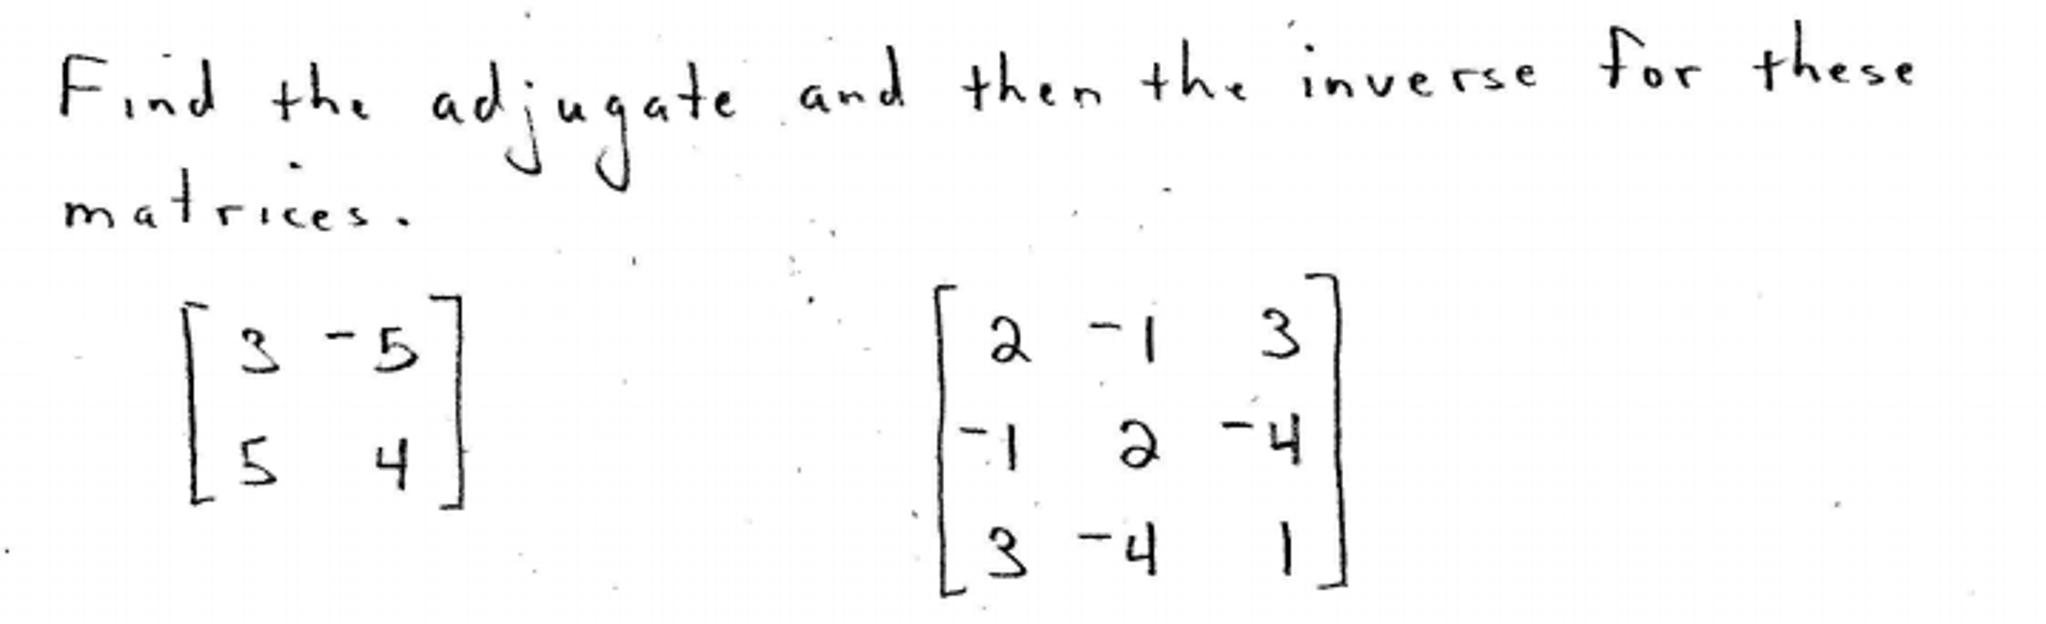 Find the adjugate and then the inverse for these
matrices.
[3 -5] [2 -1 3]
[5 4] [-1 2 -4]
[3 -4 1]